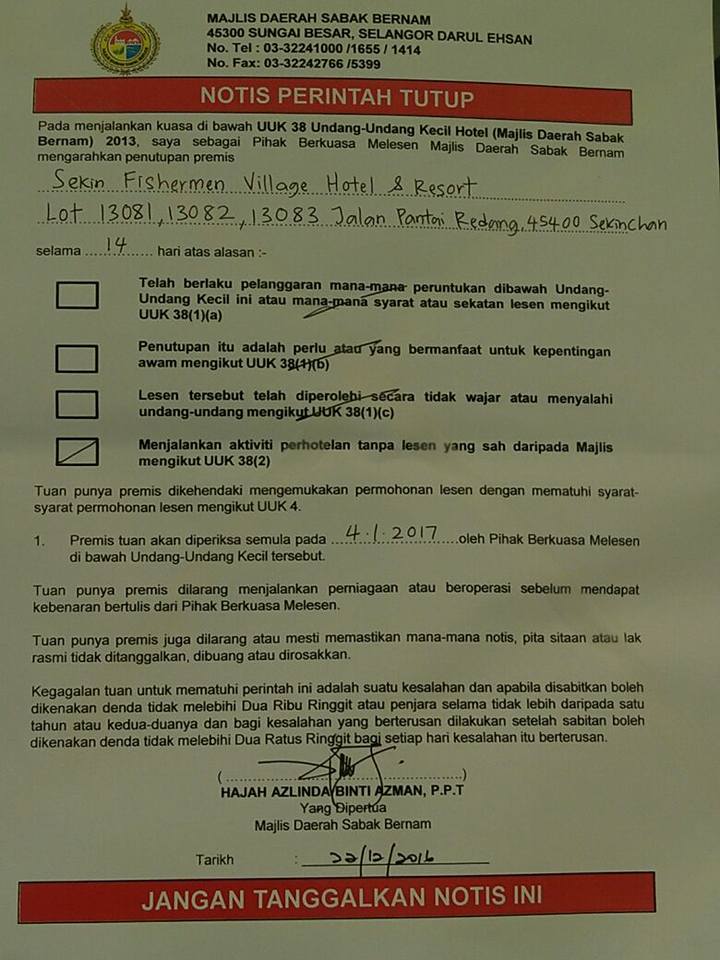 MAJLIS DAERAH SABAK BERNAM
45300 SUNGAI BESAR, SELANGOR DARUL EHSAN
No. Tel : 03-32241000 /1655 / 1414
No. Fax: 03-32242766 /5399
NOTIS PERINTAH TUTUP
Pada menjalankan kuasa di bawah UUK 38 Undang-Undang Kecil Hotel (Majlis Daerah Sabak
Bernam) 2013, saya sebagai Pihak Berkuasa Melesen Majlis Daerah Sabak Bernam
mengarahkan penutupan premis
Sekin Fishermen Village Hotel & Resort
Lot 13081, 13082, 13083 Jalan Pantai Redang, 45400 Sekinchan
selama ......14...... hari atas alasan :-
Telah berlaku pelanggaran mana-mana peruntukan dibawah Undang-
Undang Kecil ini atau mana-mana syarat atau sekatan lesen mengikut
UUK 38(1)(a)
Penutupan itu adalah perlu atau yang bermanfaat untuk kepentingan
awam mengikut UUK 38(1)(b)
Lesen tersebut telah diperolehi secara tidak wajar atau menyalahi
undang-undang mengikut UUK 38(1)(c)
Menjalankan aktiviti perhotelan tanpa lesen yang sah daripada Majlis
mengikut UUK 38(2)
Tuan punya premis dikehendaki mengemukakan permohonan lesen dengan mematuhi syarat-
syarat permohonan lesen mengikut UUK 4.
1. Premis tuan akan diperiksa semula pada ...4.1.2017......oleh Pihak Berkuasa Melesen
di bawah Undang-Undang Kecil tersebut.
Tuan punya premis dilarang menjalankan perniagaan atau beroperasi sebelum mendapat
kebenaran bertulis dari Pihak Berkuasa Melesen.
Tuan punya premis juga dilarang atau mesti memastikan mana-mana notis, pita sitaan atau lak
rasmi tidak ditanggalkan, dibuang atau dirosakkan.
Kegagalan tuan untuk mematuhi perintah ini adalah suatu kesalahan dan apabila disabitkan boleh
dikenakan denda tidak melebihi Dua Ribu Ringgit atau penjara selama tidak lebih daripada satu
tahun atau kedua-duanya dan bagi kesalahan yang berterusan dilakukan setelah sabitan boleh
dikenakan denda tidak melebihi Dua Ratus Ringgit bagi setiap hari kesalahan itu berterusan.
(....................................................)
HAJAH AZLINDA BINTI AZMAN, P.P.T
Yang Dipertua
Majlis Daerah Sabak Bernam
Tarikh : 22/12/2016
JANGAN TANGGALKAN NOTIS INI